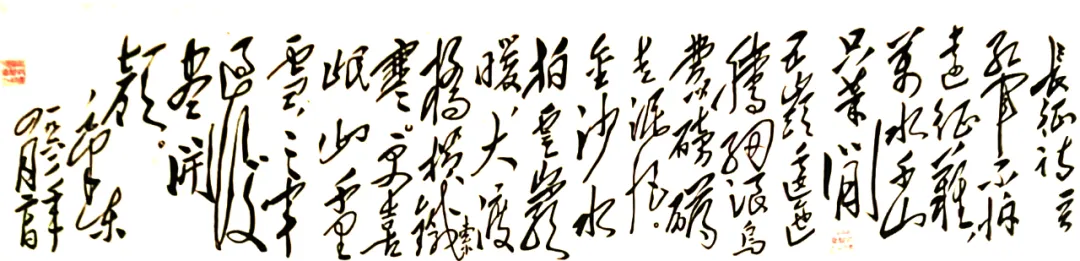 長征詩一首
紅軍不怕
遠征難，
萬水千山
只等閒
五嶺逶迤
騰細浪，烏
蒙磅礴
走泥丸。
金沙水
拍雲崖
暖，大渡
橋橫鐵索
寒。更喜
岷山千里
雪，三軍
過後
盡開
顏。
毛澤東
一九六二年
四月廿日